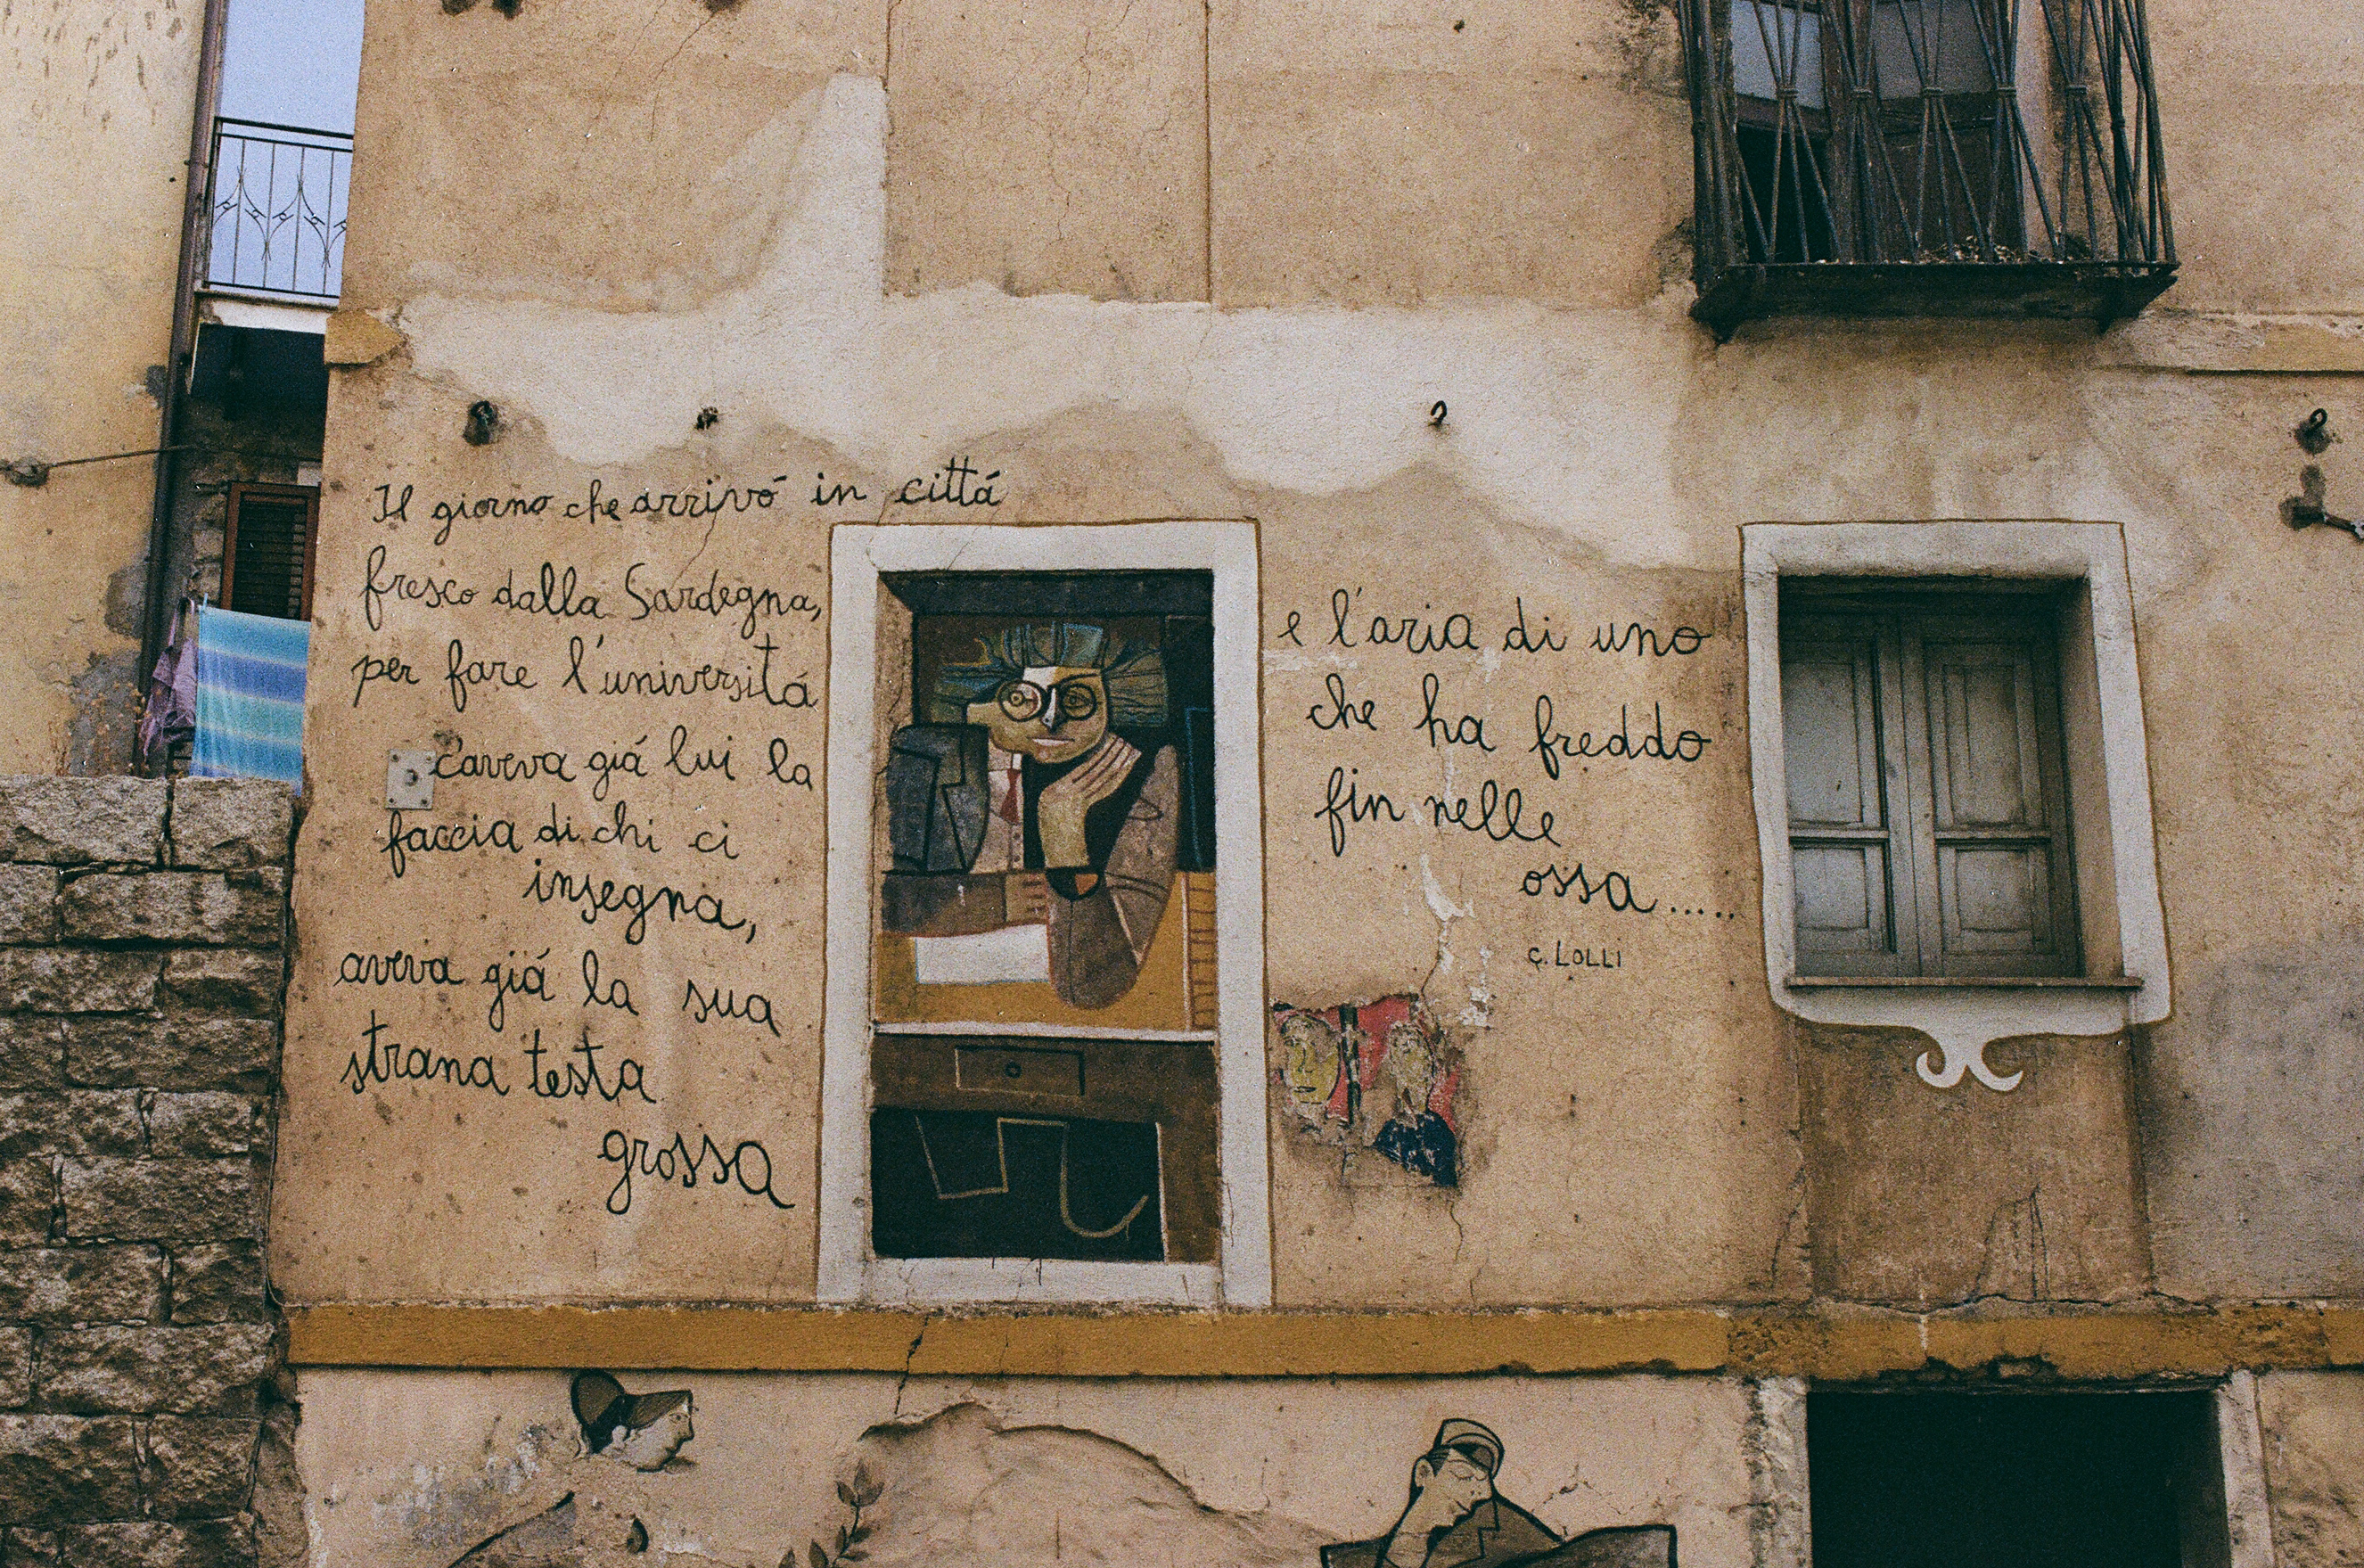 Il giorno che arrivó in cittá
fresco dalla Sardegna,
per fare l'universitá
l'aveva giá lui la
faccia di chi ci
insegna,
aveva giá la sua
strana testa
grossa
e l'aria di uno
che ha freddo
fin nelle
ossa.....
C. LOLLI